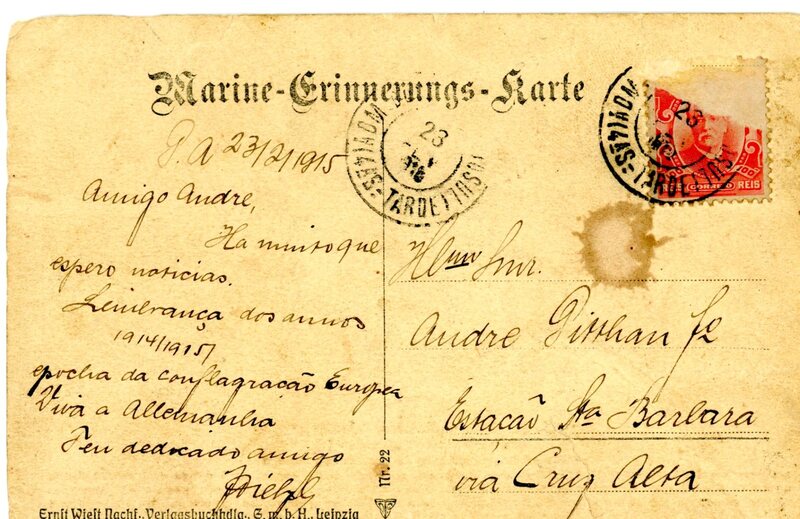 Marine-Erinnerungs-Karte
P.A 23/2/1915
Amigo Andre,
Ha muito que
espero noticias.
Lembrança dos annos
1914/1915
epocha da conflagração Europea
Viva a Allemanha
Teu dedicado amigo
Ernst Wiest Nachf., Verlagsbuchhdlg., G. m. b. H., Leipzig
Nr. 22
23
TARDE
23
TARDE
REIS CORREIO REIS
Illmo Snr.
Andre
Estação Sta Barbara
via Cruz Alta